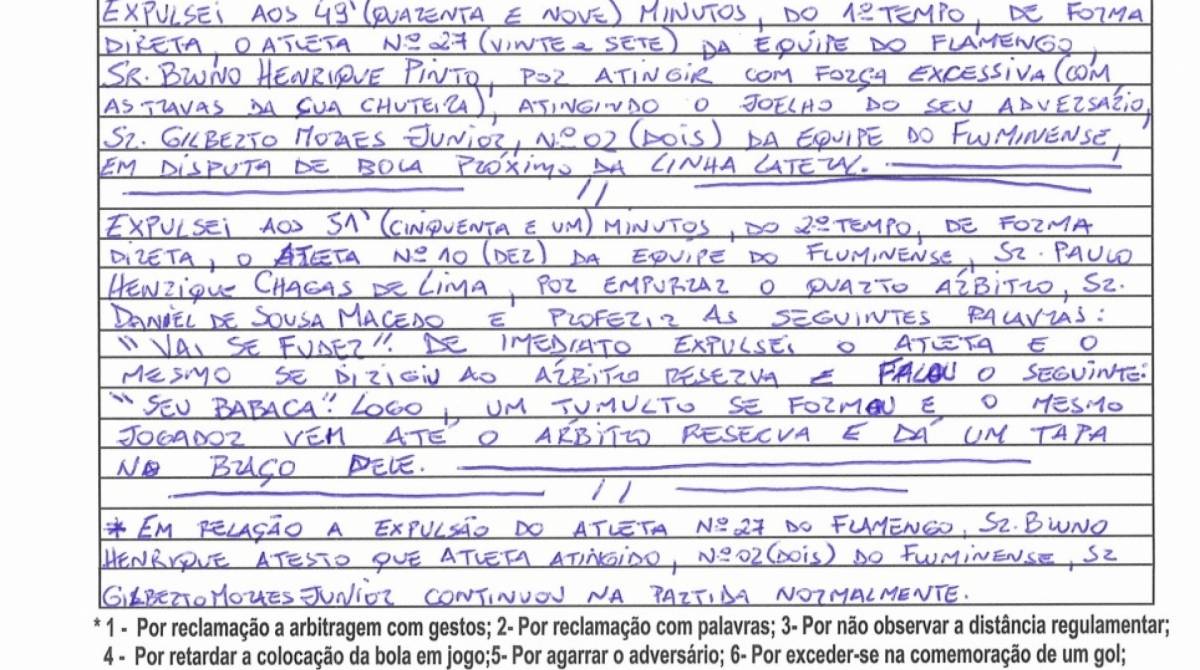 EXPULSEI AOS 49' (QUARENTA E NOVE) MINUTOS, DO 1º TEMPO, DE FORMA
DIRETA, O ATLETA Nº 27 (VINTE e SETE) DA EQUIPE DO FLAMENGO,
SR. BRUNO HENRIQUE PINTO, POR ATINGIR COM FORÇA EXCESSIVA (COM
AS TRAVAS DA SUA CHUTEIRA), ATINGINDO O JOELHO DO SEU ADVERSÁRIO,
SR. GILBERTO MORAES JUNIOR, Nº 02 (DOIS) DA EQUIPE DO FLUMINENSE,
EM DISPUTA DE BOLA PRÓXIMO DA LINHA LATERAL.
//
EXPULSEI AOS 51' (CINQUENTA E UM) MINUTOS, DO 2º TEMPO, DE FORMA
DIRETA, O ATLETA Nº 10 (DEZ) DA EQUIPE DO FLUMINENSE, SR. PAULO
HENRIQUE CHAGAS DE LIMA, POR EMPURRAR O QUARTO ÁRBITRO, SR.
DANIEL DE SOUSA MACEDO E PROFERIR AS SEGUINTES PALAVRAS:
"VAI SE FUDER". DE IMEDIATO EXPULSEI O ATLETA E O
MESMO SE DIRIGIU AO ÁRBITRO RESERVA E FALOU O SEGUINTE:
"SEU BABACA". LOGO, UM TUMULTO SE FORMOU E O MESMO
JOGADOR VEM ATÉ O ÁRBITRO RESERVA E DÁ UM TAPA
NO BRAÇO DELE.
//
* EM RELAÇÃO A EXPULSÃO DO ATLETA Nº 27 DO FLAMENGO, SR. BRUNO
HENRIQUE ATESTO QUE ATLETA ATINGIDO, Nº 02 (DOIS) DO FLUMINENSE, SR
GILBERTO MORAES JUNIOR CONTINUOU NA PARTIDA NORMALMENTE.
* 1 - Por reclamação a arbitragem com gestos; 2- Por reclamação com palavras; 3- Por não observar a distância regulamentar;
4 - Por retardar a colocação da bola em jogo;5- Por agarrar o adversário; 6- Por exceder-se na comemoração de um gol;